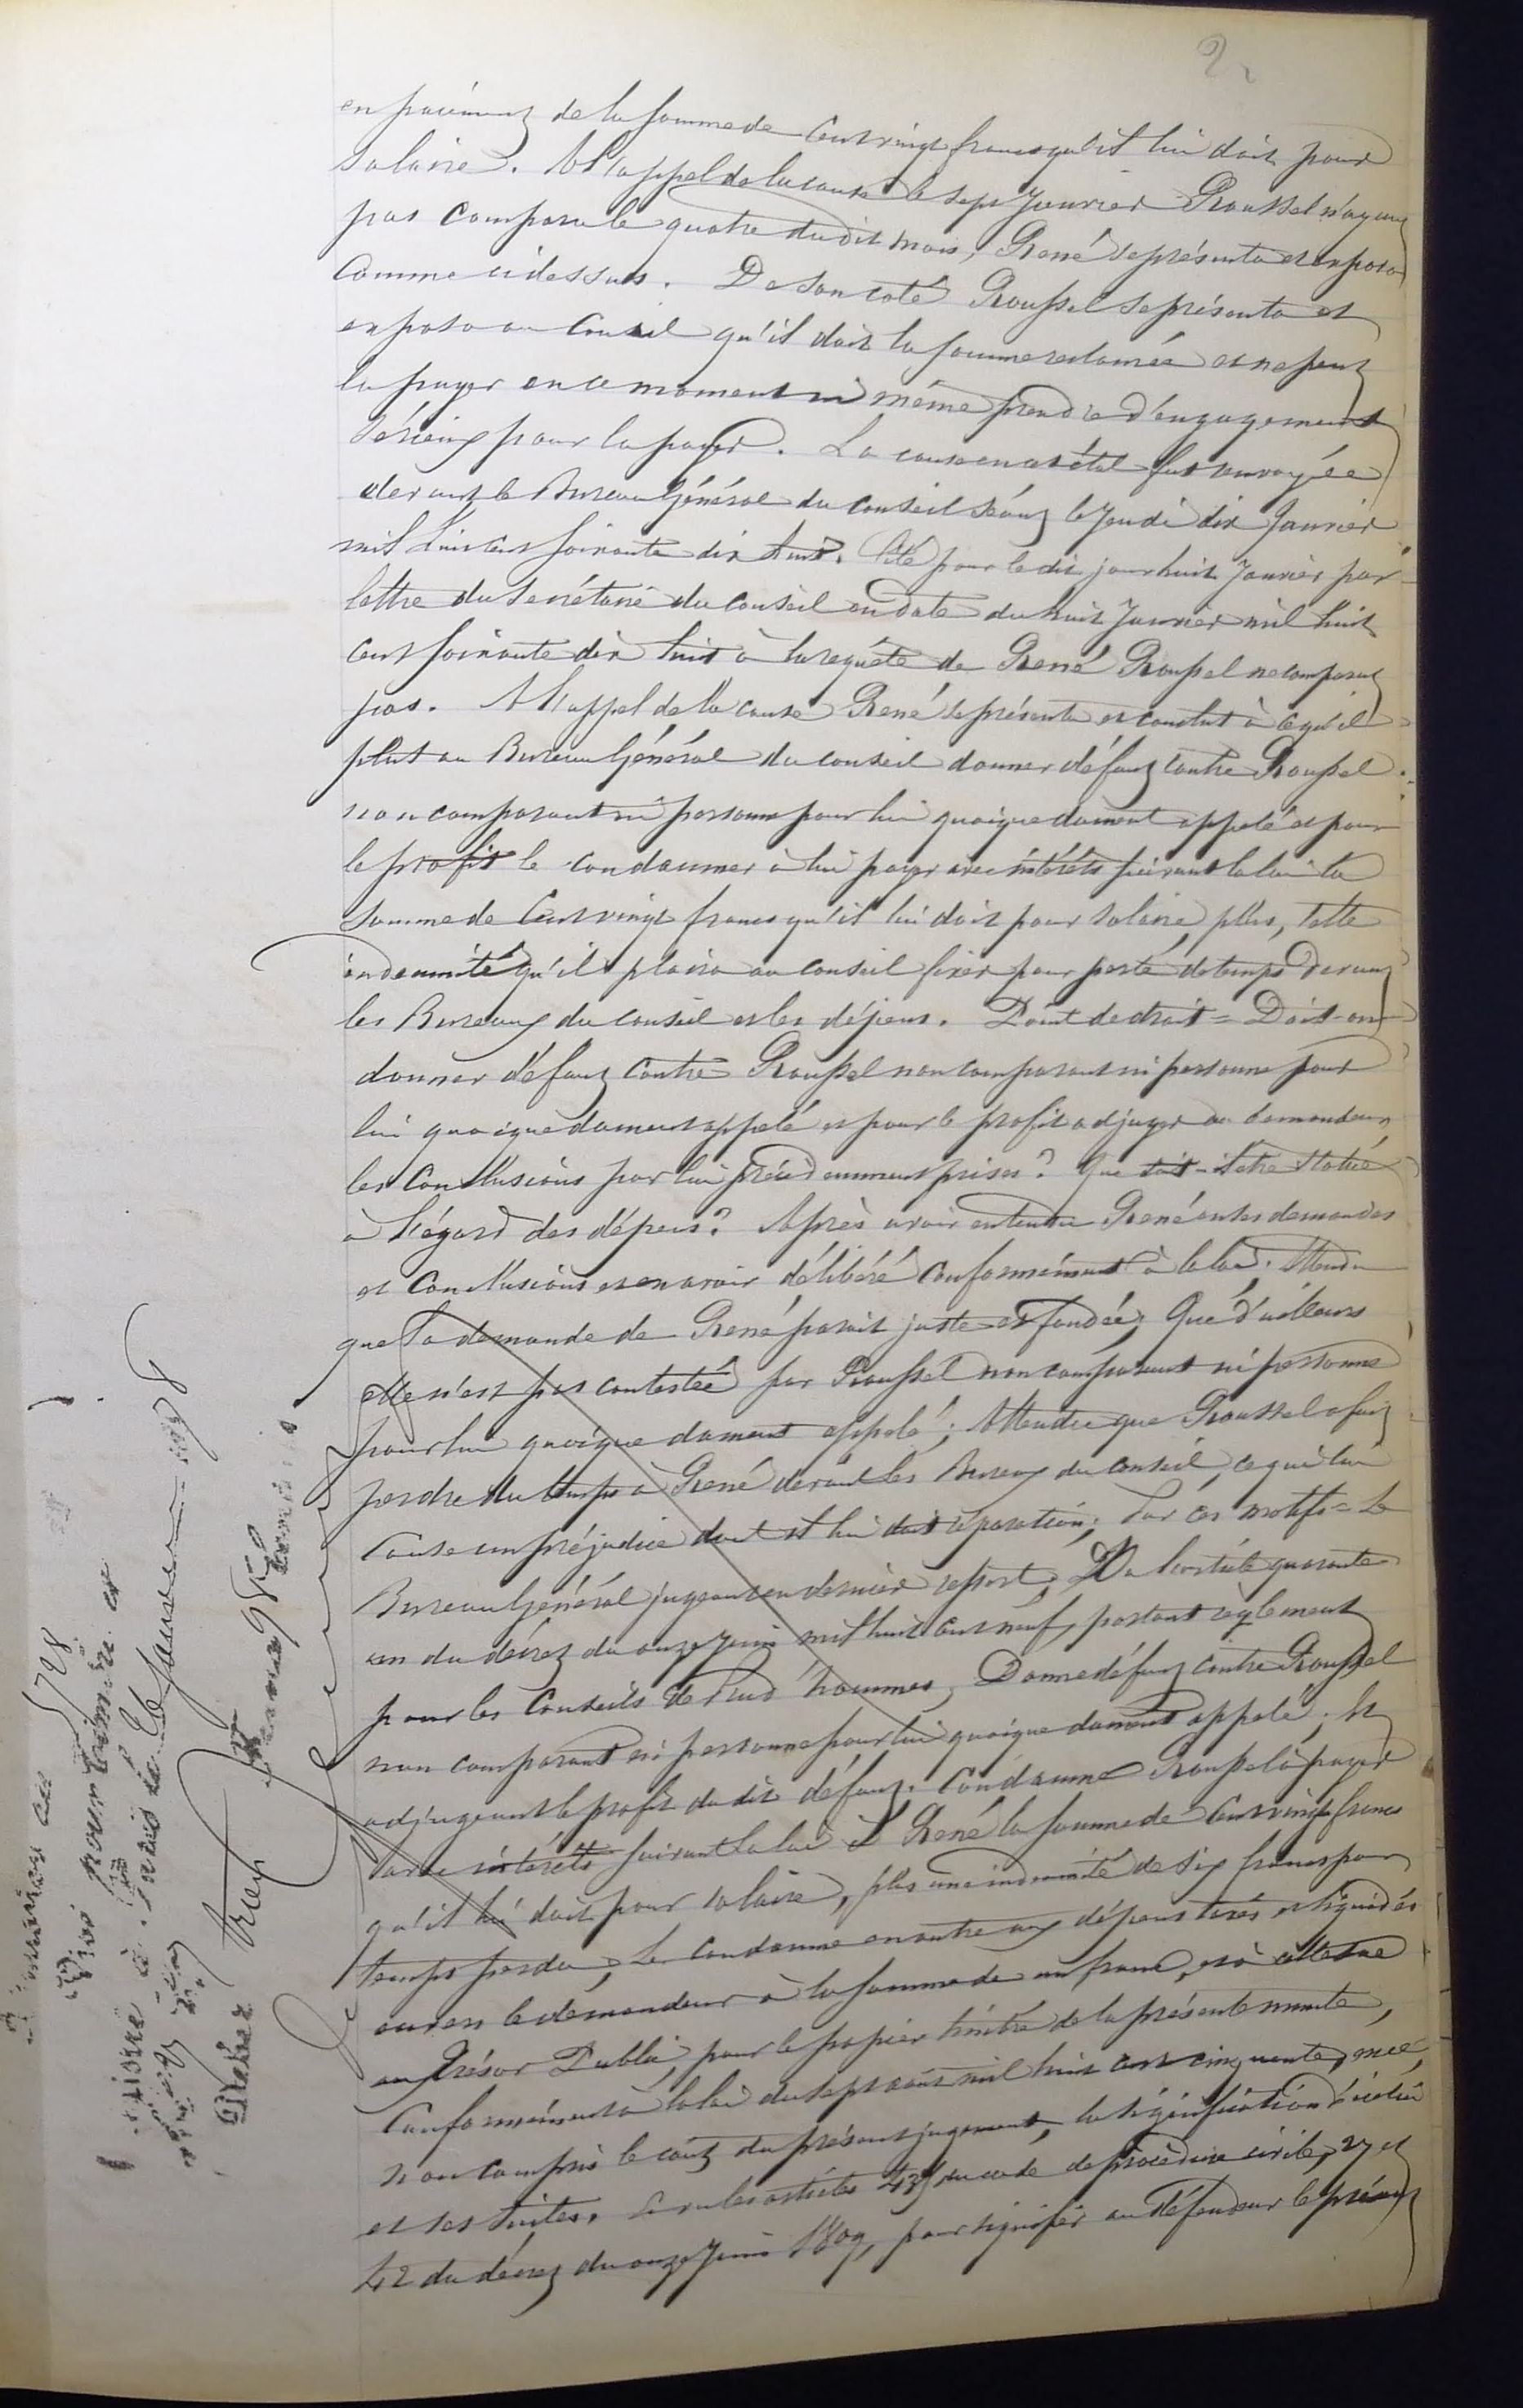 2
en paiement de la somme de Cent vingt francs qu'il lui doit pour
salaire. A l'appel de la cause le sept Janvier Roussel n'ayant
pas comparu le quatre du dit mois, René se présenta et exposa
comme ci dessus. De son coté Roussel se présenta et
exposa au Conseil qu'il doit la somme reclamée et ne peut
la payer en ce moment ni même prendre d'engagement
sérieux pour la payer. La cause en cet état fut renvoyée
devant le Bureau Général du Conseil séant le Jeudi dix Janvier
mil huit cent soixante dix huit. Cité pour le dit jour huit Janvier par
lettre du secrétaire du Conseil en date du huit Janvier mil huit
cent soixante dix huit à la requête de René Roussel ne comparut
pas. A l'appel de la cause René se présenta et conclut à ce qu'il
plut au Bureau Général du Conseil donner défaut contre Roussel
non comparant ni personne pour lui quoique dûment appelé et pour
le profit le condamner à lui payer avec intérêts suivant la loi la
somme de Cent vingt francs qu'il lui doit pour salaire, plus, telle
indemnité qu'il plaira au conseil fixer pour perte de temps devant
les Bureaux du Conseil et les dépens. Point de droit = Doit-on
donner défaut contre Roussel non comparant ni personne pour
lui quoique dument appelé et pour le profit adjuger au demandeur
les Conclusions par lui précédemment prises? Que doit-il être statué
à l'égard des dépens? Après avoir entendu René en ses demandes
et Conclusions et en avoir délibéré conformément à la loi. Attendu
que la demande de René parait juste et fondée; Que d'ailleurs
elle n'est pas contestée par Roussel non comparant ni personne
pour lui quoique dument appelé; Attendu que Roussel a fait
perdre du temps à René devant les Bureaux du Conseil, ce qui lui
cause un préjudice dont il lui doit réparation; Par ces motifs = Le
Bureau Général jugeant en dernier ressort; Vu l'article quarante
un du décret du onze Juin mil huit cent neuf, portant règlement
pour les Conseils de Prud'hommes; Donne défaut contre Roussel
non comparant ni personne pour lui quoique dument appelé; Et
adjugeant le profit du dit défaut; Condamne Roussel à payer
avec intérêts suivant la loi à René la somme de Cent vingt francs
qu'il lui doit pour salaire, plus une indemnité de six francs pour
temps perdu; Le Condamne en outre aux dépens taxés et liquidés
envers le demandeur à la somme de un franc, et à celle due
au Trésor Public, pour le papier timbré de la présente minute,
Conformément à la loi du sept août mil huit cent cinquante, ence,
non compris le cout du présent jugement, la signification d'icelui
et ses suites. Et vu les articles 435 du code de procédure civile, 27 et
42 du décret du onze Juin 1809, pour signifier au défendeur le présent